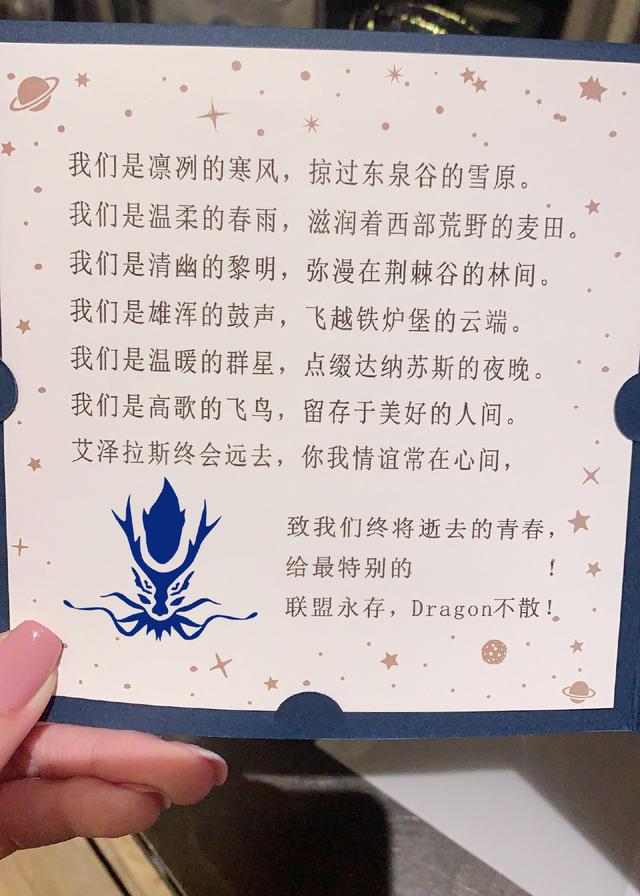 我们是凛冽的寒风，掠过东泉谷的雪原。
我们是温柔的春雨，滋润着西部荒野的麦田。
我们是清幽的黎明，弥漫在荆棘谷的林间。
我们是雄浑的鼓声，飞越铁炉堡的云端。
我们是温暖的群星，点缀达纳苏斯的夜晚。
我们是高歌的飞鸟，留存于美好的人间。
艾泽拉斯终会远去，你我情谊常在心间，
致我们终将逝去的青春，
给最特别的 ！
联盟永存，Dragon不散！